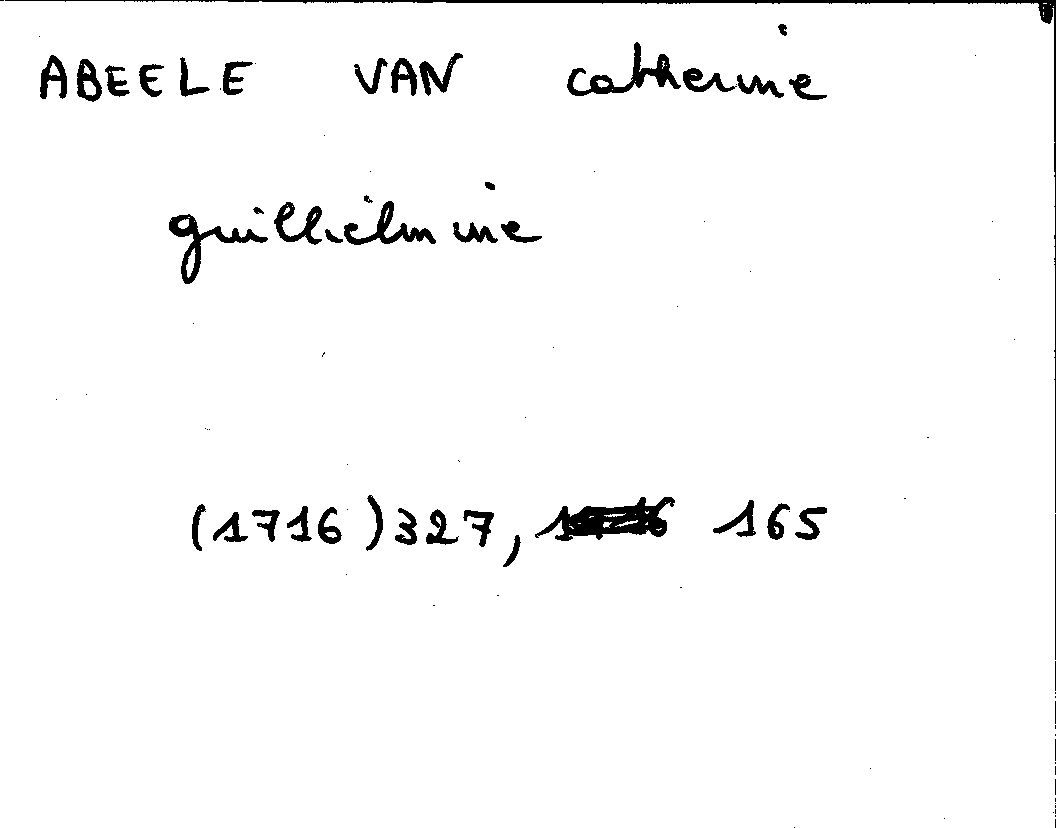 ABEELE VAN catherine
guillielmine
(1716) 327, 165